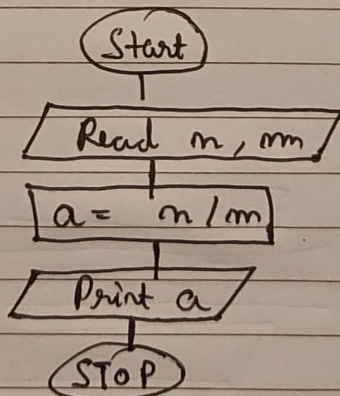 Start
Read n, m
a = n/m
Print a
STOP